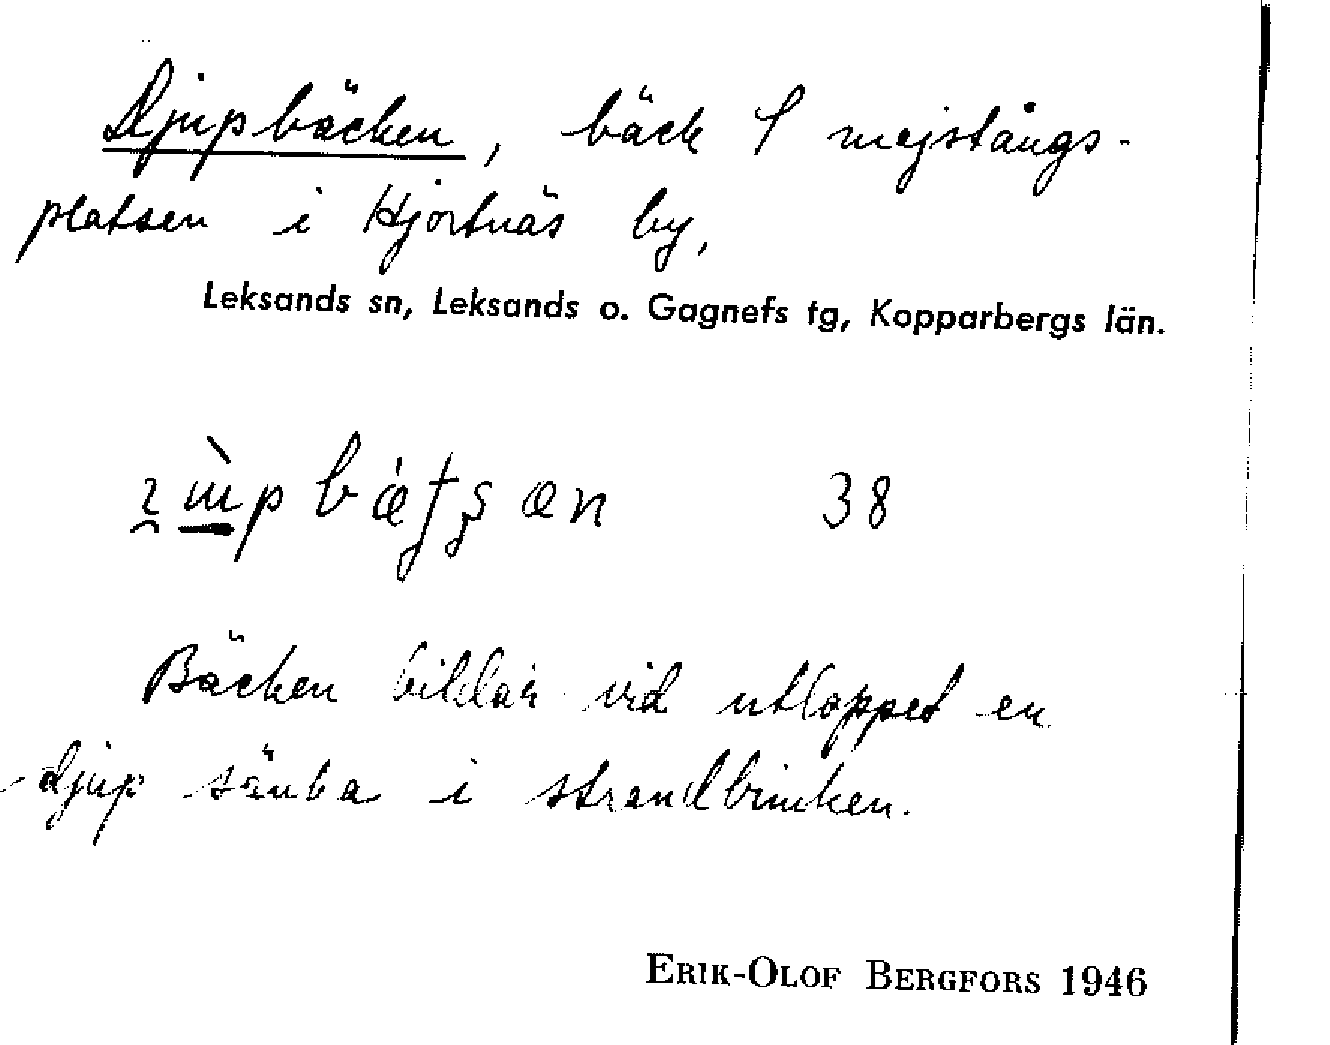 Djupbäcken, bäck S majstångs-
platsen i Hjortnäs by,
Leksands sn, Leksands o. Gagnefs tg, Kopparbergs län.
38
Bäcken bildar vid utloppet en
djup sänka i strandbrinken.
ERIK-OLOF BERGFORS 1946